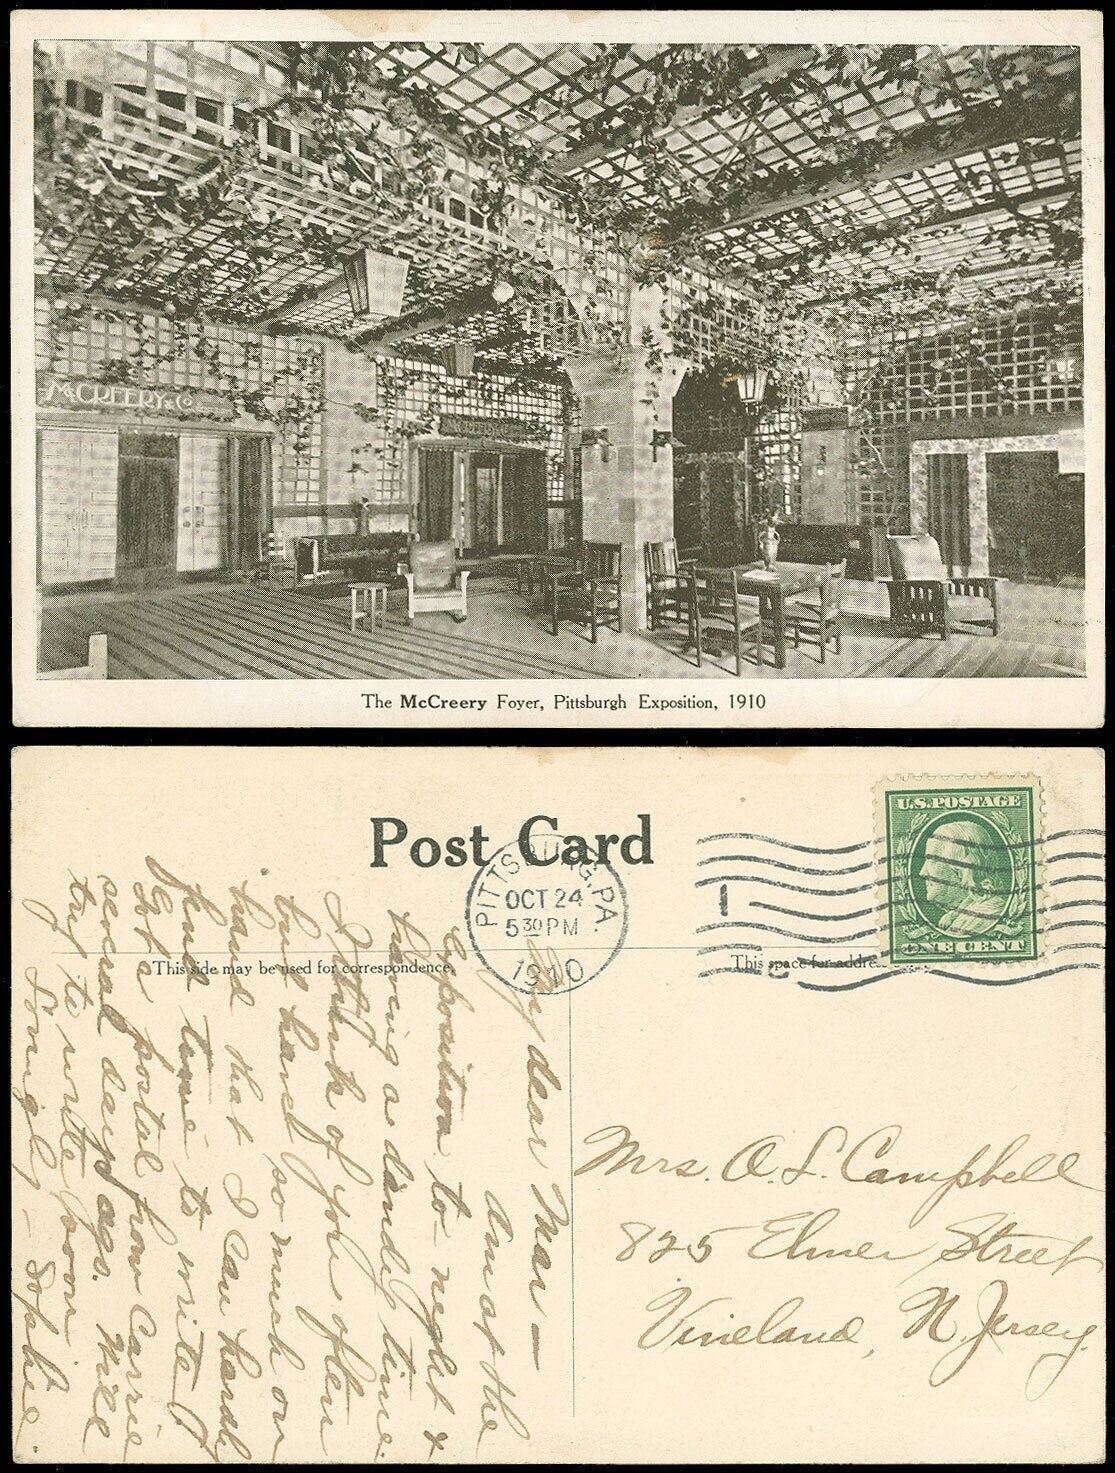 McCREERY & Co.
The McCreery Foyer, Pittsburgh Exposition, 1910
Post Card
U.S. POSTAGE
ONE CENT
PITTSBURG, PA.
OCT 24
5 30 PM
1910
1
This side may be used for correspondence.
This space for addre
My dear Mar —
Am at the
Exposition to-night &
having a dandy time.
I think of you often
but have so much on
hand that I can hardly
find time to write.
Got a postal from Carrie
several days ago. Will
try to write soon.
Lovingly — Sophie.
Mrs. A. L. Campbell
825 Elmer Street
Vineland, N. Jersey.